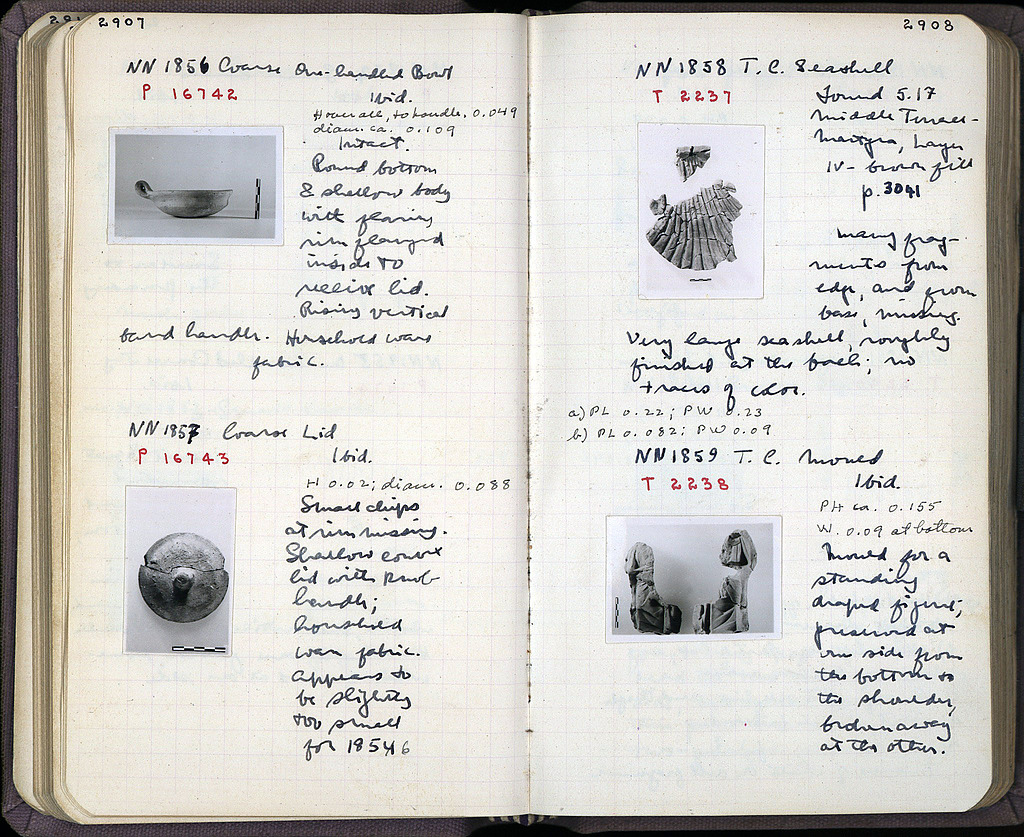 2907
NN 1856 Coarse One-handled Bowl
P 16742
Ibid.
H over all, to handle, 0.049
diam. ca. 0.109
Intact.
Round bottom
& shallow body
with flaring
rim flanged
inside to
receive lid.
Rising vertical
band handle. Household ware
fabric.
NN 1857 Coarse Lid
P 16743
Ibid.
H 0.02; diam. 0.088
Small chips
at rim missing.
Shallow convex
lid with knob
handle;
household
ware fabric.
Appears to
be slightly
too small
for 1856
2908
NN 1858 T.C. Seashell
T 2237
Found 5.17
Middle Terrace-
Martyra, Layer
IV - brown fill
p. 3041
Many frag-
ments from
edge, and from
base, missing.
Very large seashell, roughly
finished at the back; no
traces of color.
a) PL 0.22; PW 0.23
b) PL 0.082; PW 0.09
NN 1859 T.C. Mould
T 2238
Ibid.
PH ca. 0.155
W. 0.09 at bottom
Mould for a
standing
draped figure,
preserved at
one side from
the bottom to
the shoulder,
broken away
at the other.